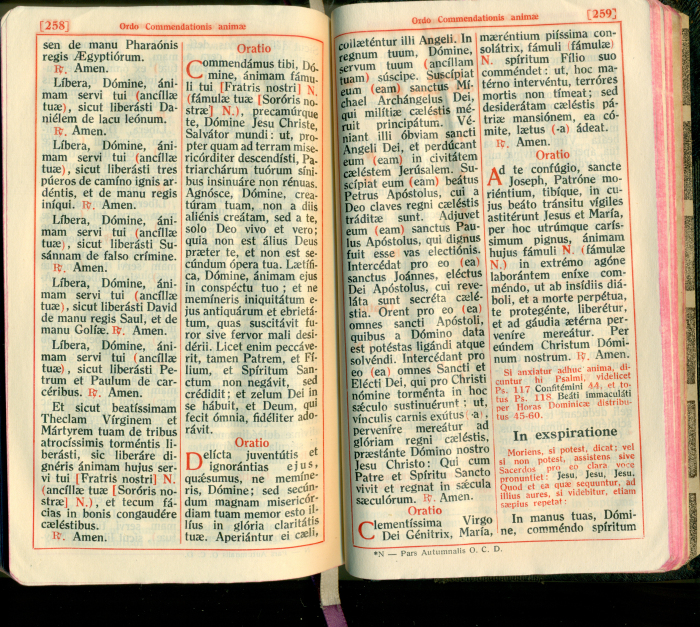 [258]
Ordo Commendationis animæ
sen de manu Pharaónis
regis Ægyptiórum.
℟. Amen.
Líbera, Dómine, áni-
mam servi tui (ancíllæ
tuæ), sicut liberásti Da-
niélem de lacu leónum.
℟. Amen.
Líbera, Dómine, áni-
mam servi tui (ancíllæ
tuæ), sicut liberásti tres
púeros de camíno ignis ar-
déntis, et de manu regis
iníqui. ℟. Amen.
Líbera, Dómine, áni-
mam servi tui (ancíllæ
tuæ), sicut liberásti Su-
sánnam de falso crímine.
℟. Amen.
Líbera, Dómine, áni-
mam servi tui (ancíllæ
tuæ), sicut liberásti David
de manu regis Saul, et de
manu Golíæ. ℟. Amen.
Líbera, Dómine, áni-
mam servi tui (ancíllæ
tuæ), sicut liberásti Pe-
trum et Paulum de car-
céribus. ℟. Amen.
Et sicut beatíssimam
Theclam Vírginem et
Mártyrem tuam de tribus
atrocíssimis torméntis li-
berásti, sic liberáre di-
gnéris ánimam hujus ser-
vi tui [Fratris nostri] N.
(ancíllæ tuæ [Soróris no-
stræ] N.), et tecum fá-
cias in bonis congaudére
cæléstibus.
℟. Amen.
Oratio
Commendámus tibi, Dó-
mine, ánimam fámu-
li tui [Fratris nostri] N.
(fámulæ tuæ [Soróris no-
stræ] N.), precamúrque
te, Dómine Jesu Christe,
Salvátor mundi: ut, pro-
pter quam ad terram mise-
ricórditer descendísti, Pa-
triarchárum tuórum síni-
bus insinuáre non rénuas.
Agnósce, Dómine, crea-
túram tuam, non a diis
aliénis creátam, sed a te,
solo Deo vivo et vero;
quia non est álius Deus
præter te, et non est se-
cúndum ópera tua. Lætífi-
ca, Dómine, ánimam ejus
in conspéctu tuo; et ne
memíneris iniquitátum e-
jus antiquárum et ebrietá-
tum, quas suscitávit fu-
ror sive fervor mali desi-
dérii. Licet enim peccáve-
rit, tamen Patrem, et Fí-
lium, et Spíritum San-
ctum non negávit, sed
crédidit; et zelum Dei in
se hábuit, et Deum, qui
fecit ómnia, fidéliter ado-
rávit.
Oratio
Delícta juventútis et
ignorántias ejus,
quǽsumus, ne memíne-
ris, Dómine; sed secún-
dum magnam misericór-
diam tuam memor esto il-
líus in glória claritátis
tuæ. Aperiántur ei cæli,
Ordo Commendationis animæ
[259]
collæténtur illi Angeli. In
regnum tuum, Dómine,
servum tuum (ancíllam
tuam) súscipe. Suscípiat
eum (eam) sanctus Mí-
chael Archángelus Dei,
qui milítiæ cæléstis mé-
ruit principátum. Vé-
niant illi óbviam sancti
Angeli Dei, et perdúcant
eum (eam) in civitátem
cæléstem Jerúsalem. Su-
scípiat eum (eam) beátus
Petrus Apóstolus, cui a
Deo claves regni cæléstis
tráditæ sunt. Adjuvet
eum (eam) sanctus Pau-
lus Apóstolus, qui dignus
fuit esse vas electiónis.
Intercédat pro eo (ea)
sanctus Joánnes, eléctus
Dei Apóstolus, cui reve-
láta sunt secréta cælé-
stia. Orent pro eo (ea)
omnes sancti Apóstoli,
quibus a Dómino data
est potéstas ligándi atque
solvéndi. Intercédant pro
eo (ea) omnes Sancti et
Elécti Dei, qui pro Christi
nómine torménta in hoc
sǽculo sustinuérunt: ut,
vínculis carnis exútus (-a),
perveníre mereátur ad
glóriam regni cæléstis,
præstánte Dómino nostro
Jesu Christo: Qui cum
Patre et Spíritu Sancto
vivit et regnat in sǽcula
sæculórum. ℟. Amen.
Oratio
Clementíssima Virgo
Dei Génitrix, María,
mæréntium piíssima con-
solátrix, fámuli (fámulæ)
N. spíritum Fílio suo
comméndet: ut, hoc ma-
térno intervéntu, terróres
mortis non tímeat; sed
desiderátam cæléstis pá-
triæ mansiónem, ea có-
mite, lætus (-a) ádeat.
℟. Amen.
Oratio
Ad te confúgio, sancte
Joseph, Patróne mo-
riéntium, tibíque, in cu-
jus beáto tránsitu vígiles
astitérunt Jesus et María,
per hoc utrúmque carís-
simum pignus, ánimam
hujus fámuli N. (fámulæ
N.) in extrémo agóne
laborántem eníxe com-
méndo, ut ab insídiis diá-
boli, et a morte perpétua,
te protegénte, liberétur,
et ad gáudia ætérna per-
veníre mereátur. Per
eúndem Christum Dómi-
num nostrum. ℟. Amen.
Si anxiatur adhuc anima, di-
cuntur hi Psalmi, videlicet
Ps. 117 Confitémini 44, et to-
tus Ps. 118 Beáti immaculáti
per Horas Dominicæ distribu-
tus 45-60.
In exspiratione
Moriens, si potest, dicat; vel
si non potest, assistens sive
Sacerdos pro eo clara voce
pronuntiet: Jesu, Jesu, Jesu.
Quod et ea quæ sequuntur, ad
illius aures, si videbitur, etiam
sæpius repetat:
In manus tuas, Dómi-
ne, comméndo spíritum
*N — Pars Autumnalis O. C. D.